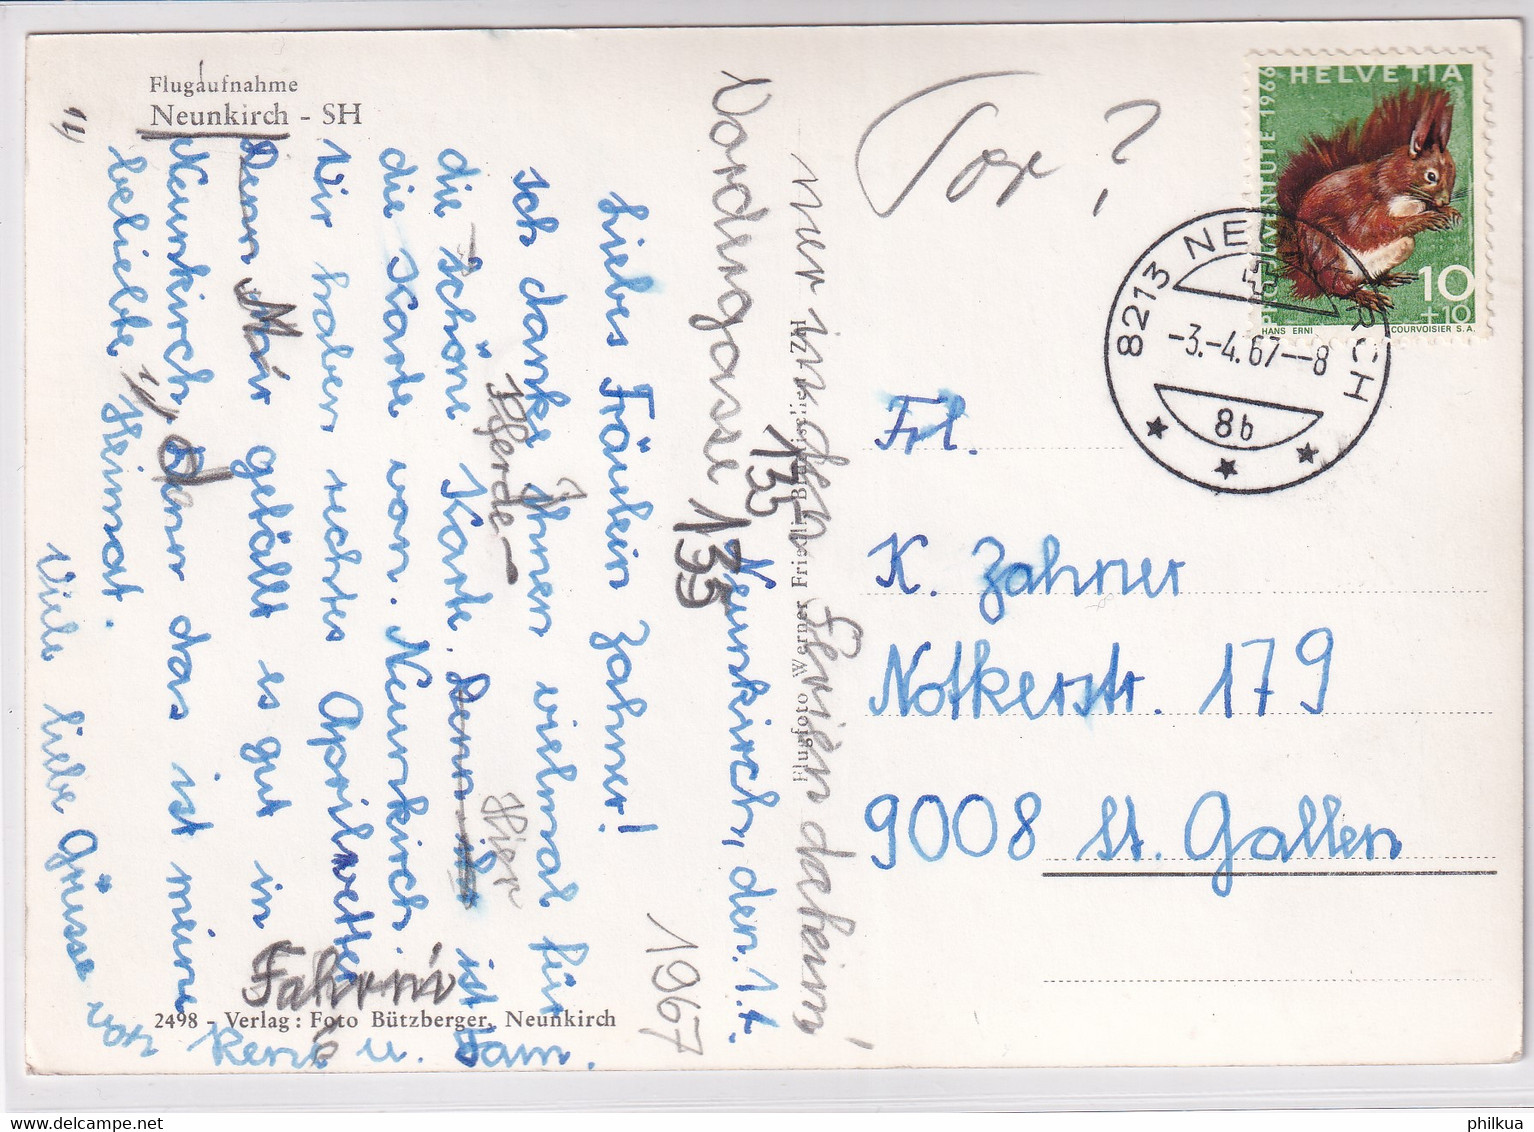 Flugaufnahme
Neunkirch - SH
Vordergasse 135
135
Neunkirch, den 1.4.
1967
Liebes Fräulein Zahner!
Ich danke Ihnen vielmal für
die schöne Karte. Denn ist
Pferde-
Hier
die Karte von Neunkirch.
Wir haben rechtes Aprilwetter
Denn Mir gefällt es gut in
Neunkirch, Denn das ist meine
beliebte Heimat.
Viele liebe Grüsse von
René u. Fam.
Fahrni
2498 - Verlag: Foto Bützberger, Neunkirch
nur in den Ferien daheim
Flugfoto Werner Friedli, Brüttisellen ZH
Tor?
HELVETIA
PRO JUVENTUTE 1966
10
+10
HANS ERNI
COURVOISIER S.A.
8213 NEUNKIRCH
-3.-4.67--8
8b
Frl.
K. Zahner
Notkerstr. 179
9008 St. Gallen
philkua.com